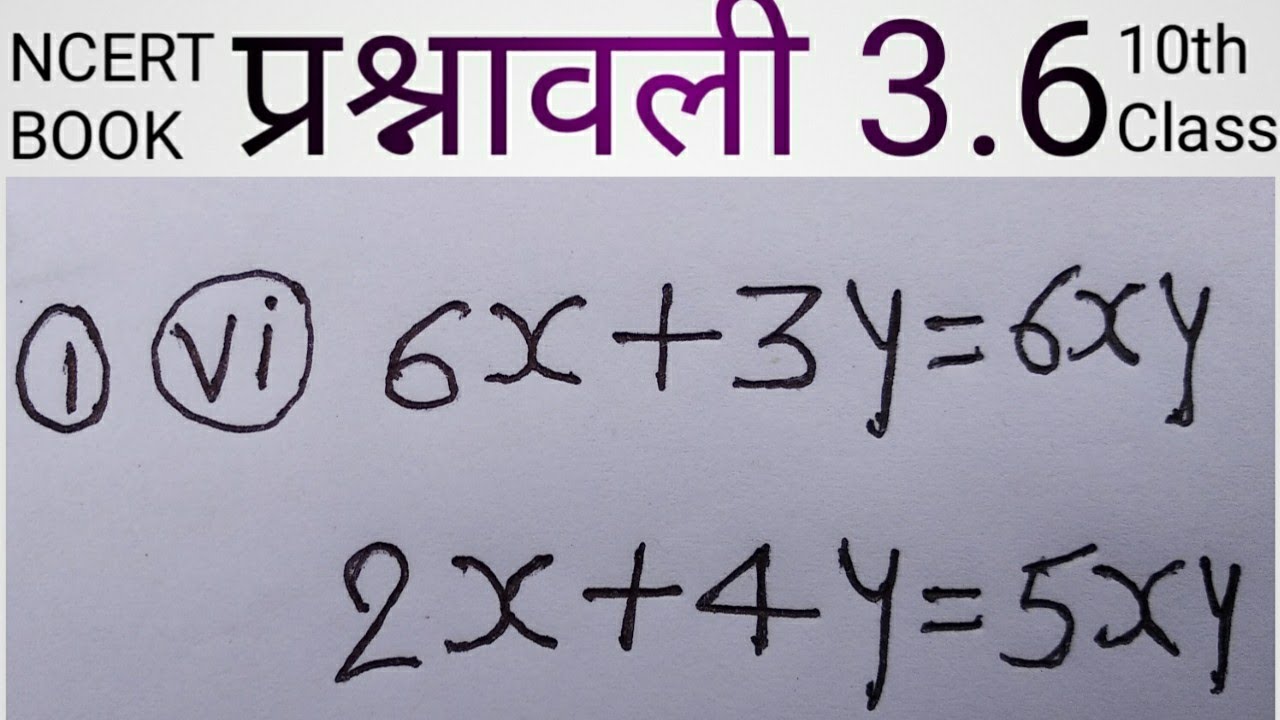 NCERT BOOK प्रश्नावली 3.6 10th Class
1 vi 6x+3y=6xy
2x+4y=5xy